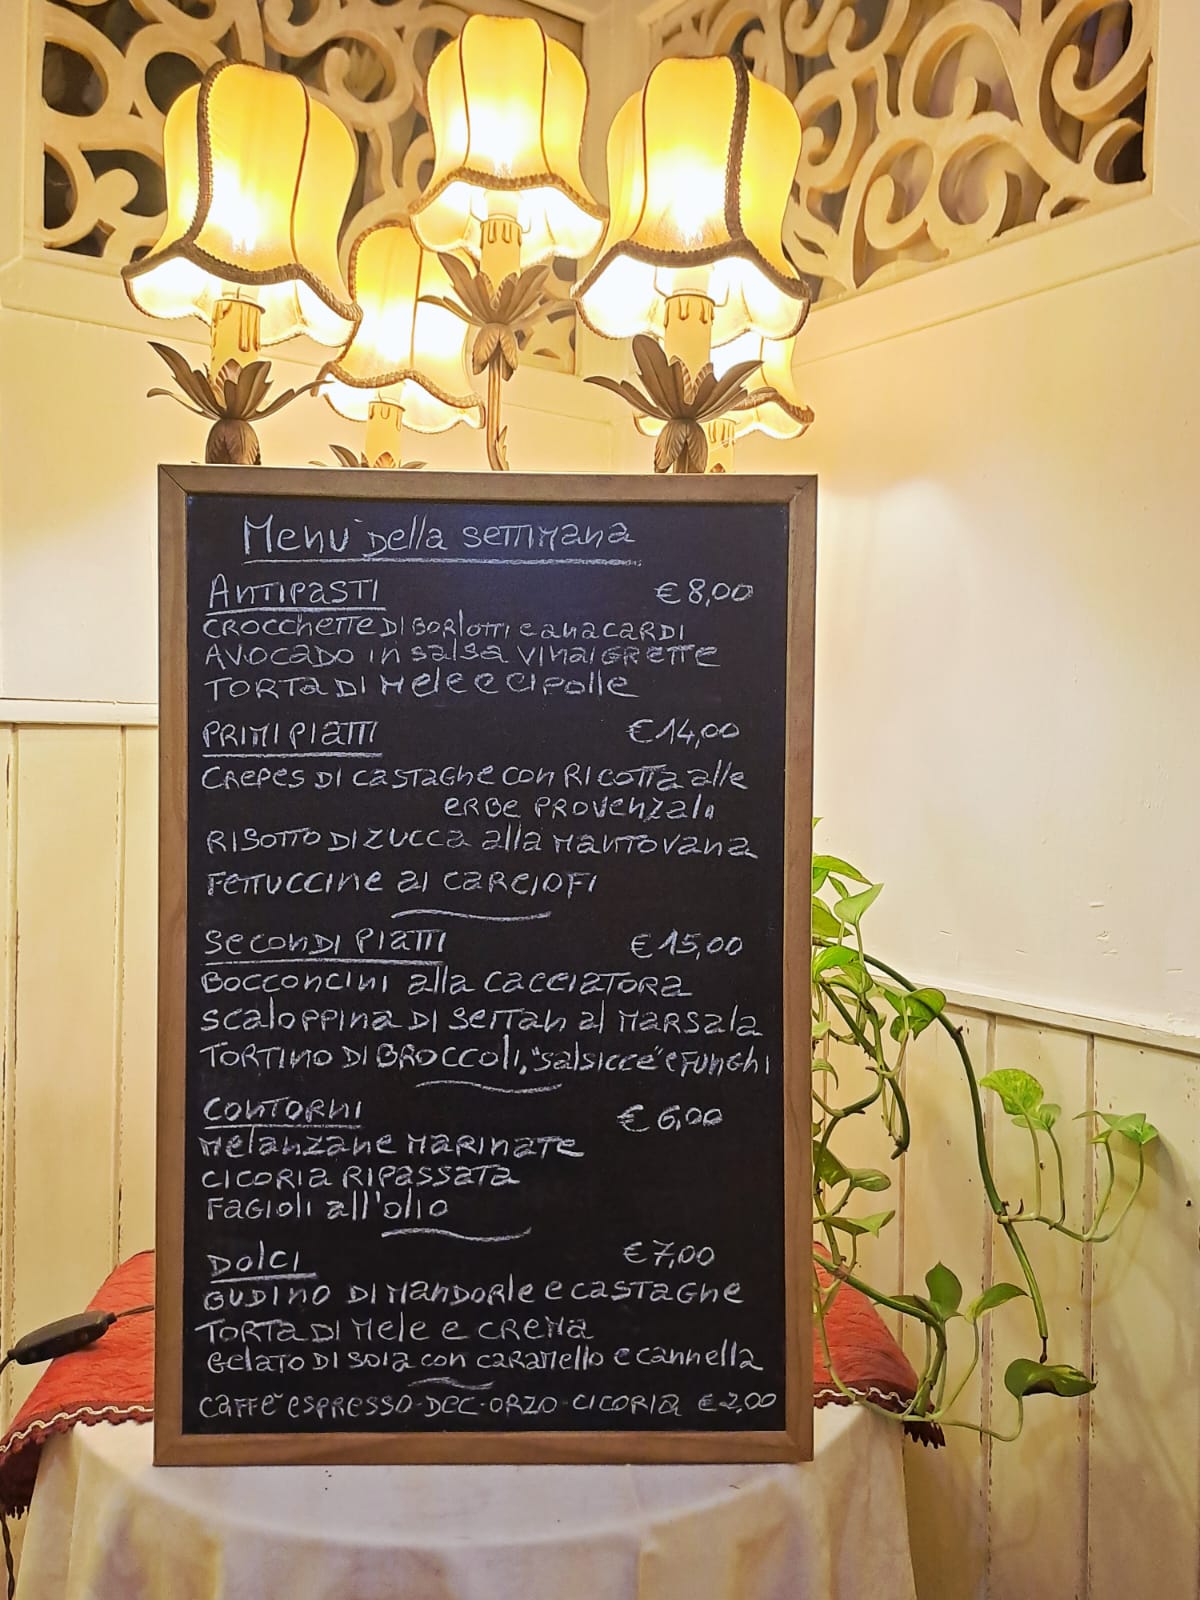 Menù della settimana
Antipasti € 8,00
Crocchette di borlotti e anacardi
Avocado in salsa vinaigrette
Torta di mele e cipolle
Primi piatti € 14,00
Crepes di castaghe con ricotta alle
erbe provenzali
Risotto di zucca alla mantovana
Fettuccine ai carciofi
Secondi piatti € 15,00
Bocconcini alla cacciatora
Scaloppina di seitan al marsala
Tortino di broccoli, "salsicce" e funghi
Contorni € 6,00
Melanzane marinate
Cicoria ripassata
Fagioli all'olio
Dolci € 7,00
Budino di mandorle e castaghe
Torta di mele e crema
Gelato di soia con caramello e cannella
Caffè espresso - dec - orzo - cicoria € 2,00